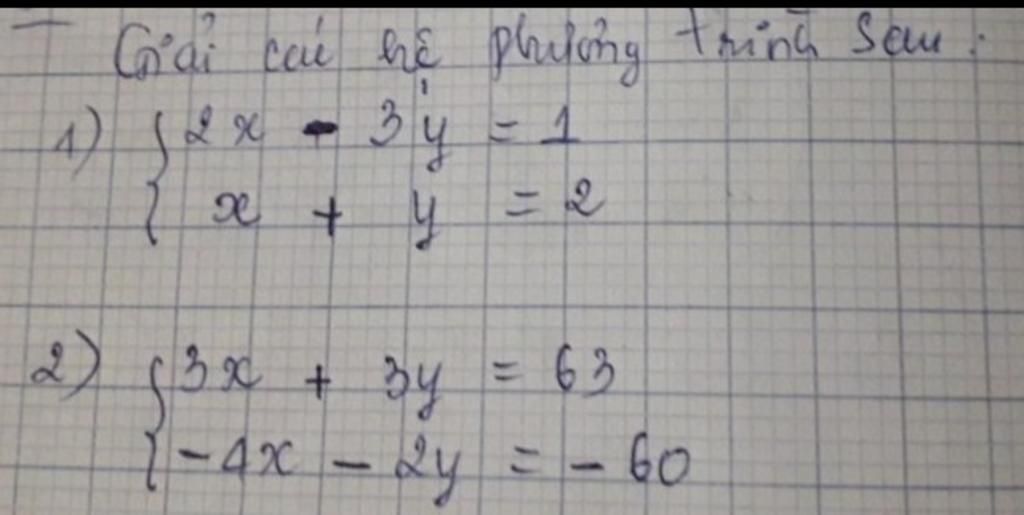 Giải các hệ phương trình sau:
1) { 2x - 3y = 1
{ x + y = 2
2) { 3x + 3y = 63
{ -4x - 2y = -60